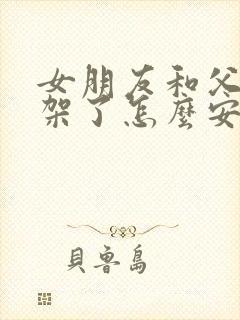 女朋友和父
架了怎麼安
貝魯島